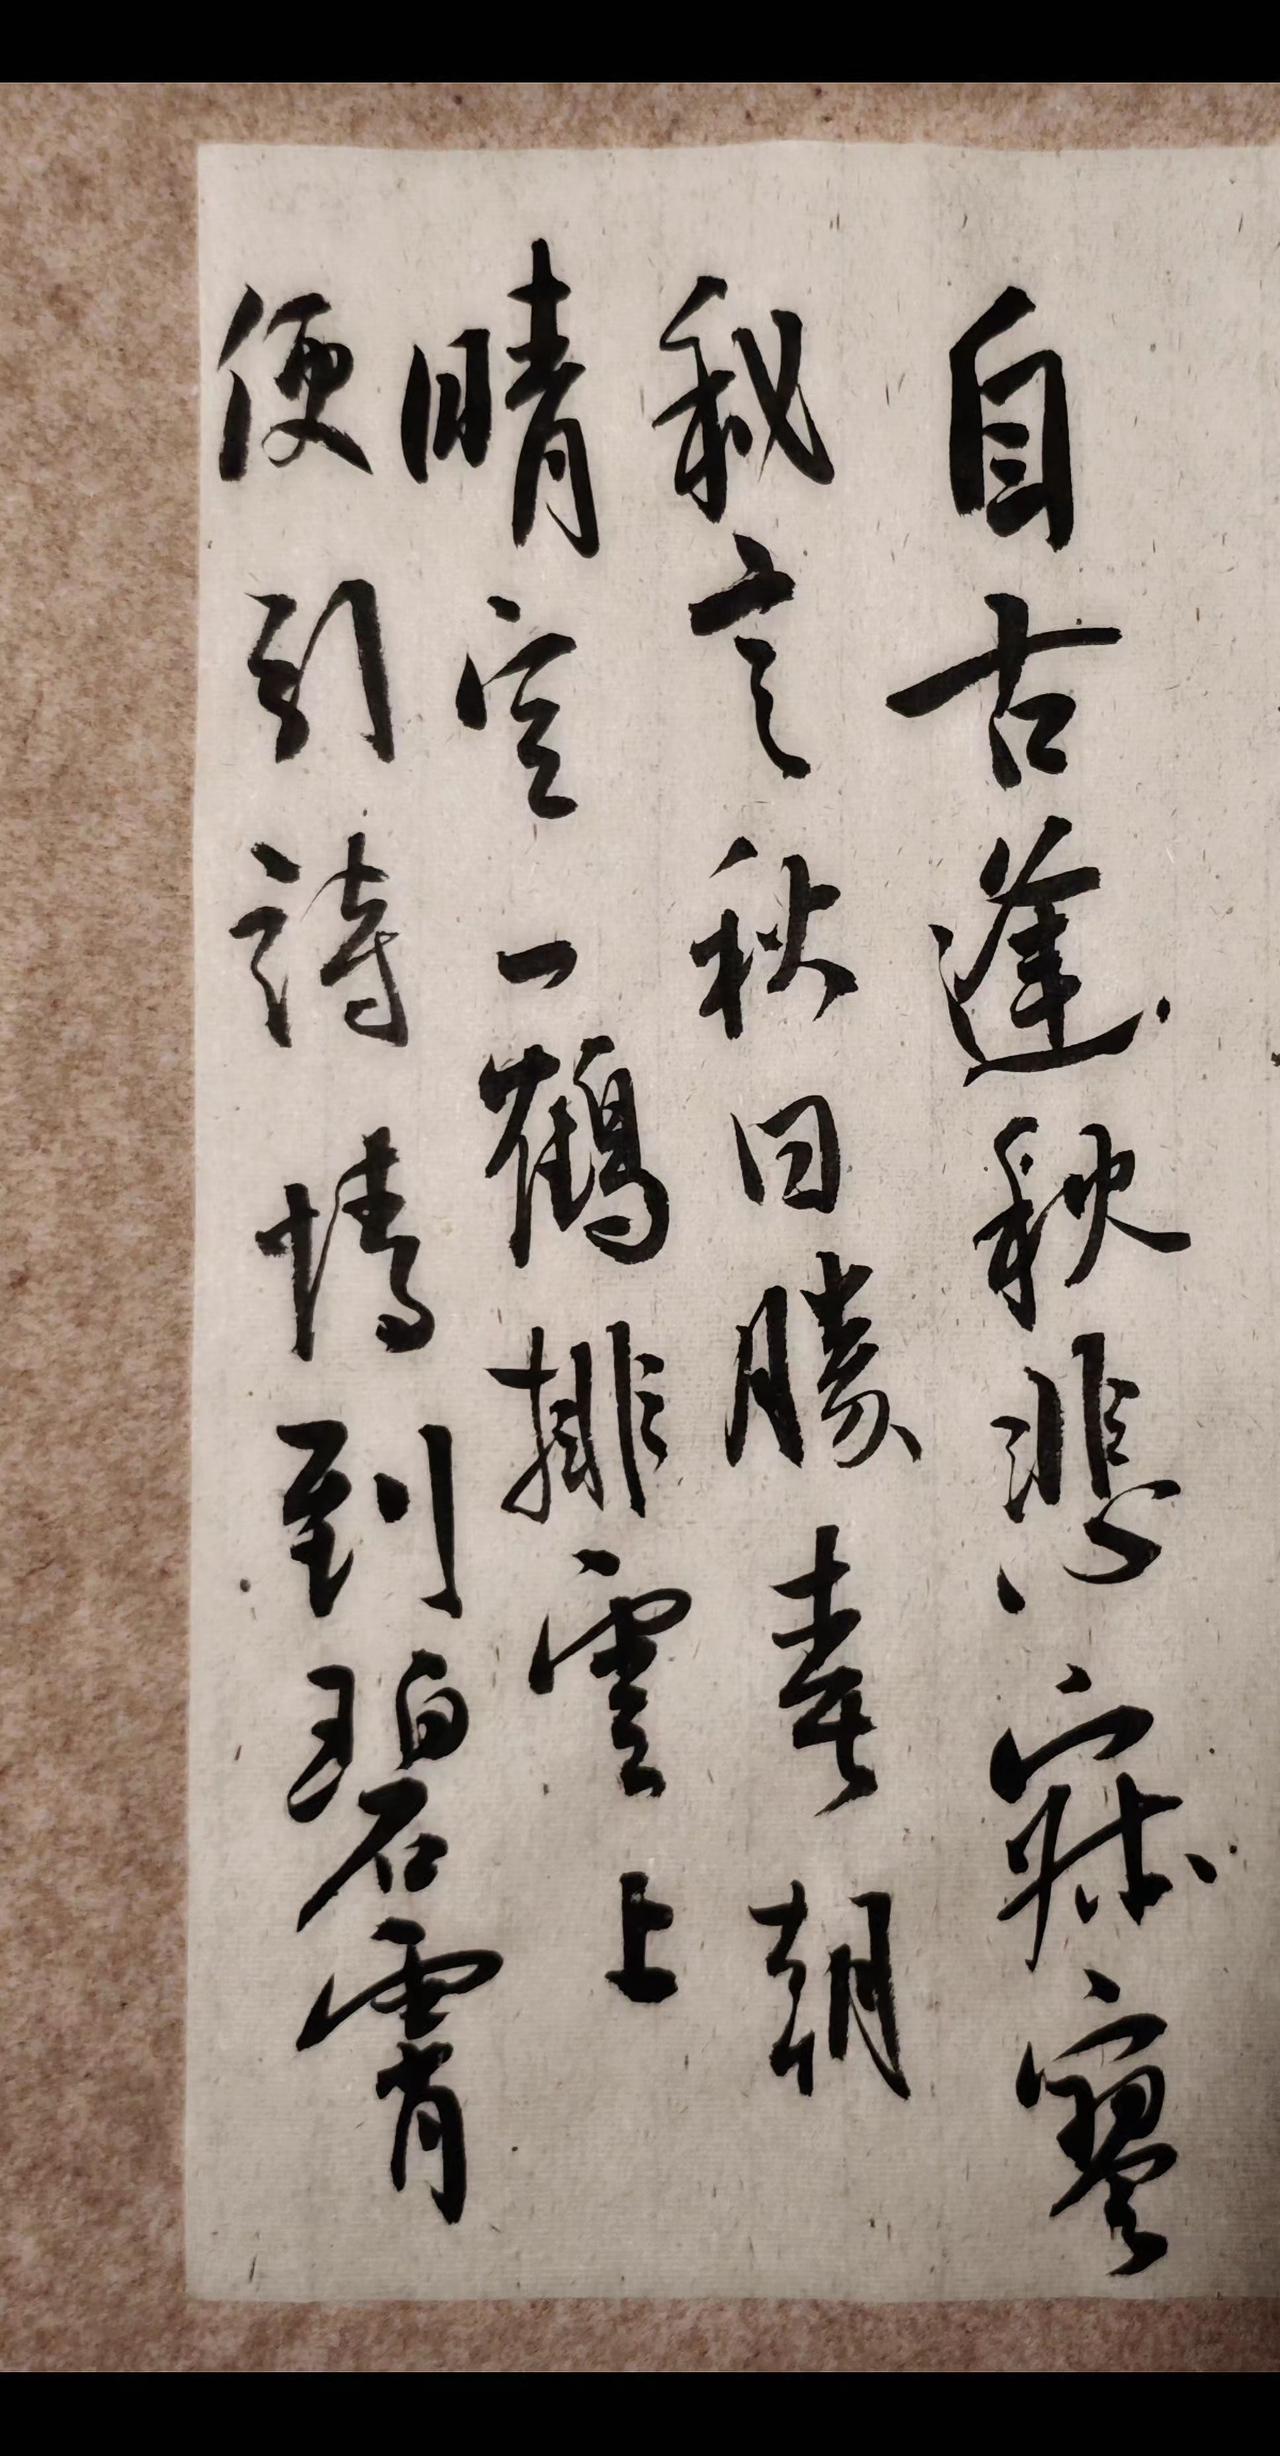 自古逢秋悲寂寥
我言秋日勝春朝
晴空一鶴排雲上
便引詩情到碧霄